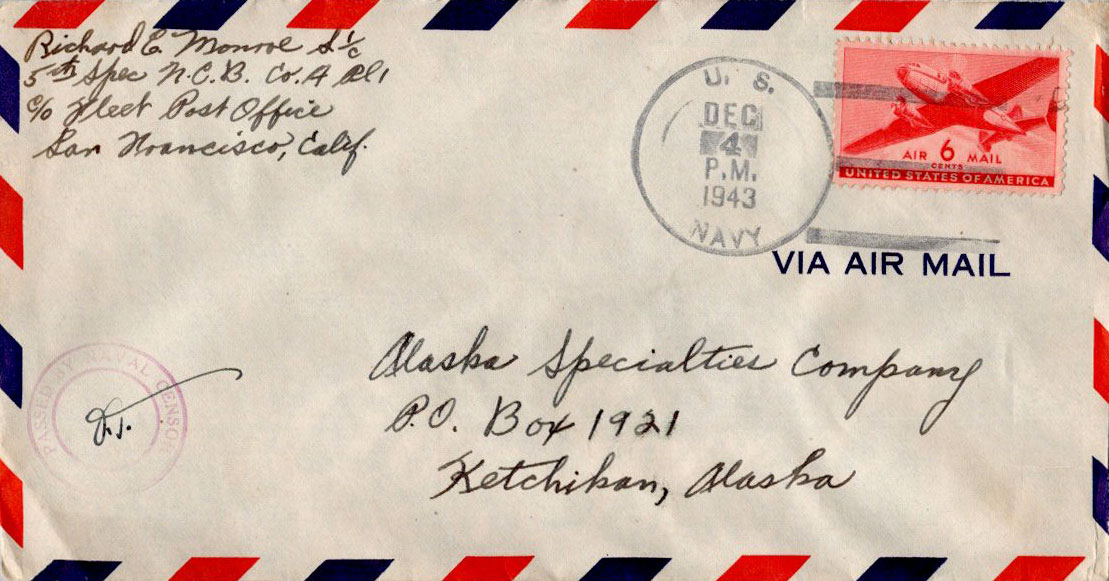 Richard E. Monroe S 1/c
5th Spec N.C.B. Co. A Pl 1
c/o Fleet Post Office
San Francisco, Calif.
U. S.
DEC
4
P.M.
1943
NAVY
AIR 6 MAIL
CENTS
UNITED STATES OF AMERICA
VIA AIR MAIL
PASSED BY NAVAL CENSOR
Alaska Specialties Company
P.O. Box 1921
Ketchikan, Alaska